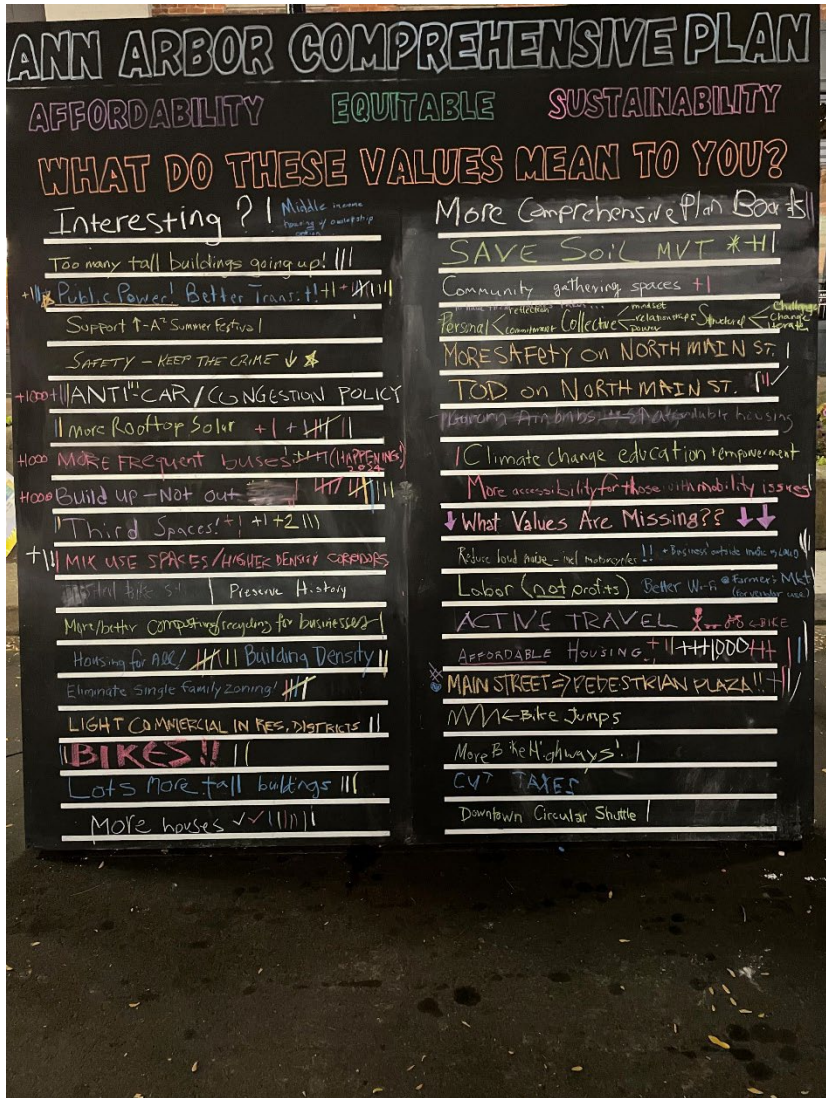 ANN ARBOR COMPREHENSIVE PLAN
AFFORDABILITY EQUITABLE SUSTAINABILITY
WHAT DO THESE VALUES MEAN TO YOU?
Interesting? | Middle income
housing w/ ownership
option
Too many tall buildings going up! |||
+||| Public Power! Better Transit! +1 +
Support ↑ A² Summer Festival |
SAFETY – KEEP THE CRIME ↓
+1000 +|| ANTI-CAR/CONGESTION POLICY
|| More Rooftop Solar +1 +
+1000 MORE FREQUENT buses! (HAPPENING!
2024)
+1000 Build up – Not out
|| Third Spaces! +1 +1 +2 |||
+||| MIX USE SPACES/HIGHER DENSITY CORRIDORS
| Preserve History
More/better Composting/recycling for businesses |
Housing for All! || Building Density ||
Eliminate Single Family Zoning!
LIGHT COMMERCIAL IN RES. DISTRICTS ||
BIKES!! ||
Lots More tall buildings |||
More houses ✓✓
More Comprehensive Plan
SAVE SOIL MVT
Community gathering spaces +1
reflection mindset Challenge
Personal < Collective < relationships Structural < Change
commitment power iterate
MORE SAFETY on NORTH MAIN ST. |
TOD on NORTH MAIN ST. ||✓
affordable housing
| Climate change education + empowerment
More accessibility for those with mobility issues
↓ What Values Are Missing?? ↓↓
Reduce loud noise – incl motorcycles !! + Business outside music is LOUD
Labor (not profits) Better Wi-fi @ Farmer's Mkt
(for vendor use)
ACTIVE TRAVEL ←BIKE
AFFORDABLE HOUSING! 1000
MAIN STREET ⇒ PEDESTRIAN PLAZA!!
←Bike Jumps
More Bike Highways! |
CUT TAXES
Downtown Circular Shuttle |